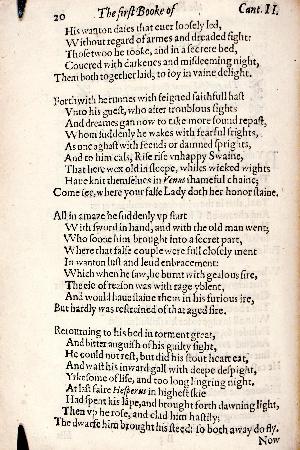 20 The first Booke of Cant. II.
His wanton daies that euer loosely led,
Without regard of armes and dreaded fight:
Those two he tooke, and in a secrete bed,
Couered with darkenes and misdeeming night,
Them both together laid, to ioy in vaine delight.
Forthwith he runnes with feigned faithfull hast
Vnto his guest, who after troublous sights
And dreames gan now to take more sound repast,
Whom suddenly he wakes with fearful frights,
As one aghast with feends or damned sprights,
And to him cals, Rise rise vnhappy Swaine,
That here wex old in sleepe, whiles wicked wights
Haue knit themselues in Venus shameful chaine;
Come see, where your false Lady doth her honor staine.
All in amaze he suddenly vp start
With sword in hand, and with the old man went;
Who soone him brought into a secret part,
Where that false couple were full closely ment
In wanton lust and leud embracement:
Which when he saw, he burnt with gealous fire,
The eie of reason was with rage yblent,
And would haue slaine them in his furious ire,
But hardly was restreined of that aged sire.
Retourning to his bed in torment great,
And bitter anguish of his guilty sight,
He could not rest, but did his stout heart eat,
And wast his inward gall with deepe despight,
Yrkesome of life, and too long lingring night.
At last faire Hesperus in highest skie
Had spent his lãpe, and brought forth dawning light,
Then vp he rose, and clad him hastily;
The dwarfe him brought his steed: so both away do fly.
Now